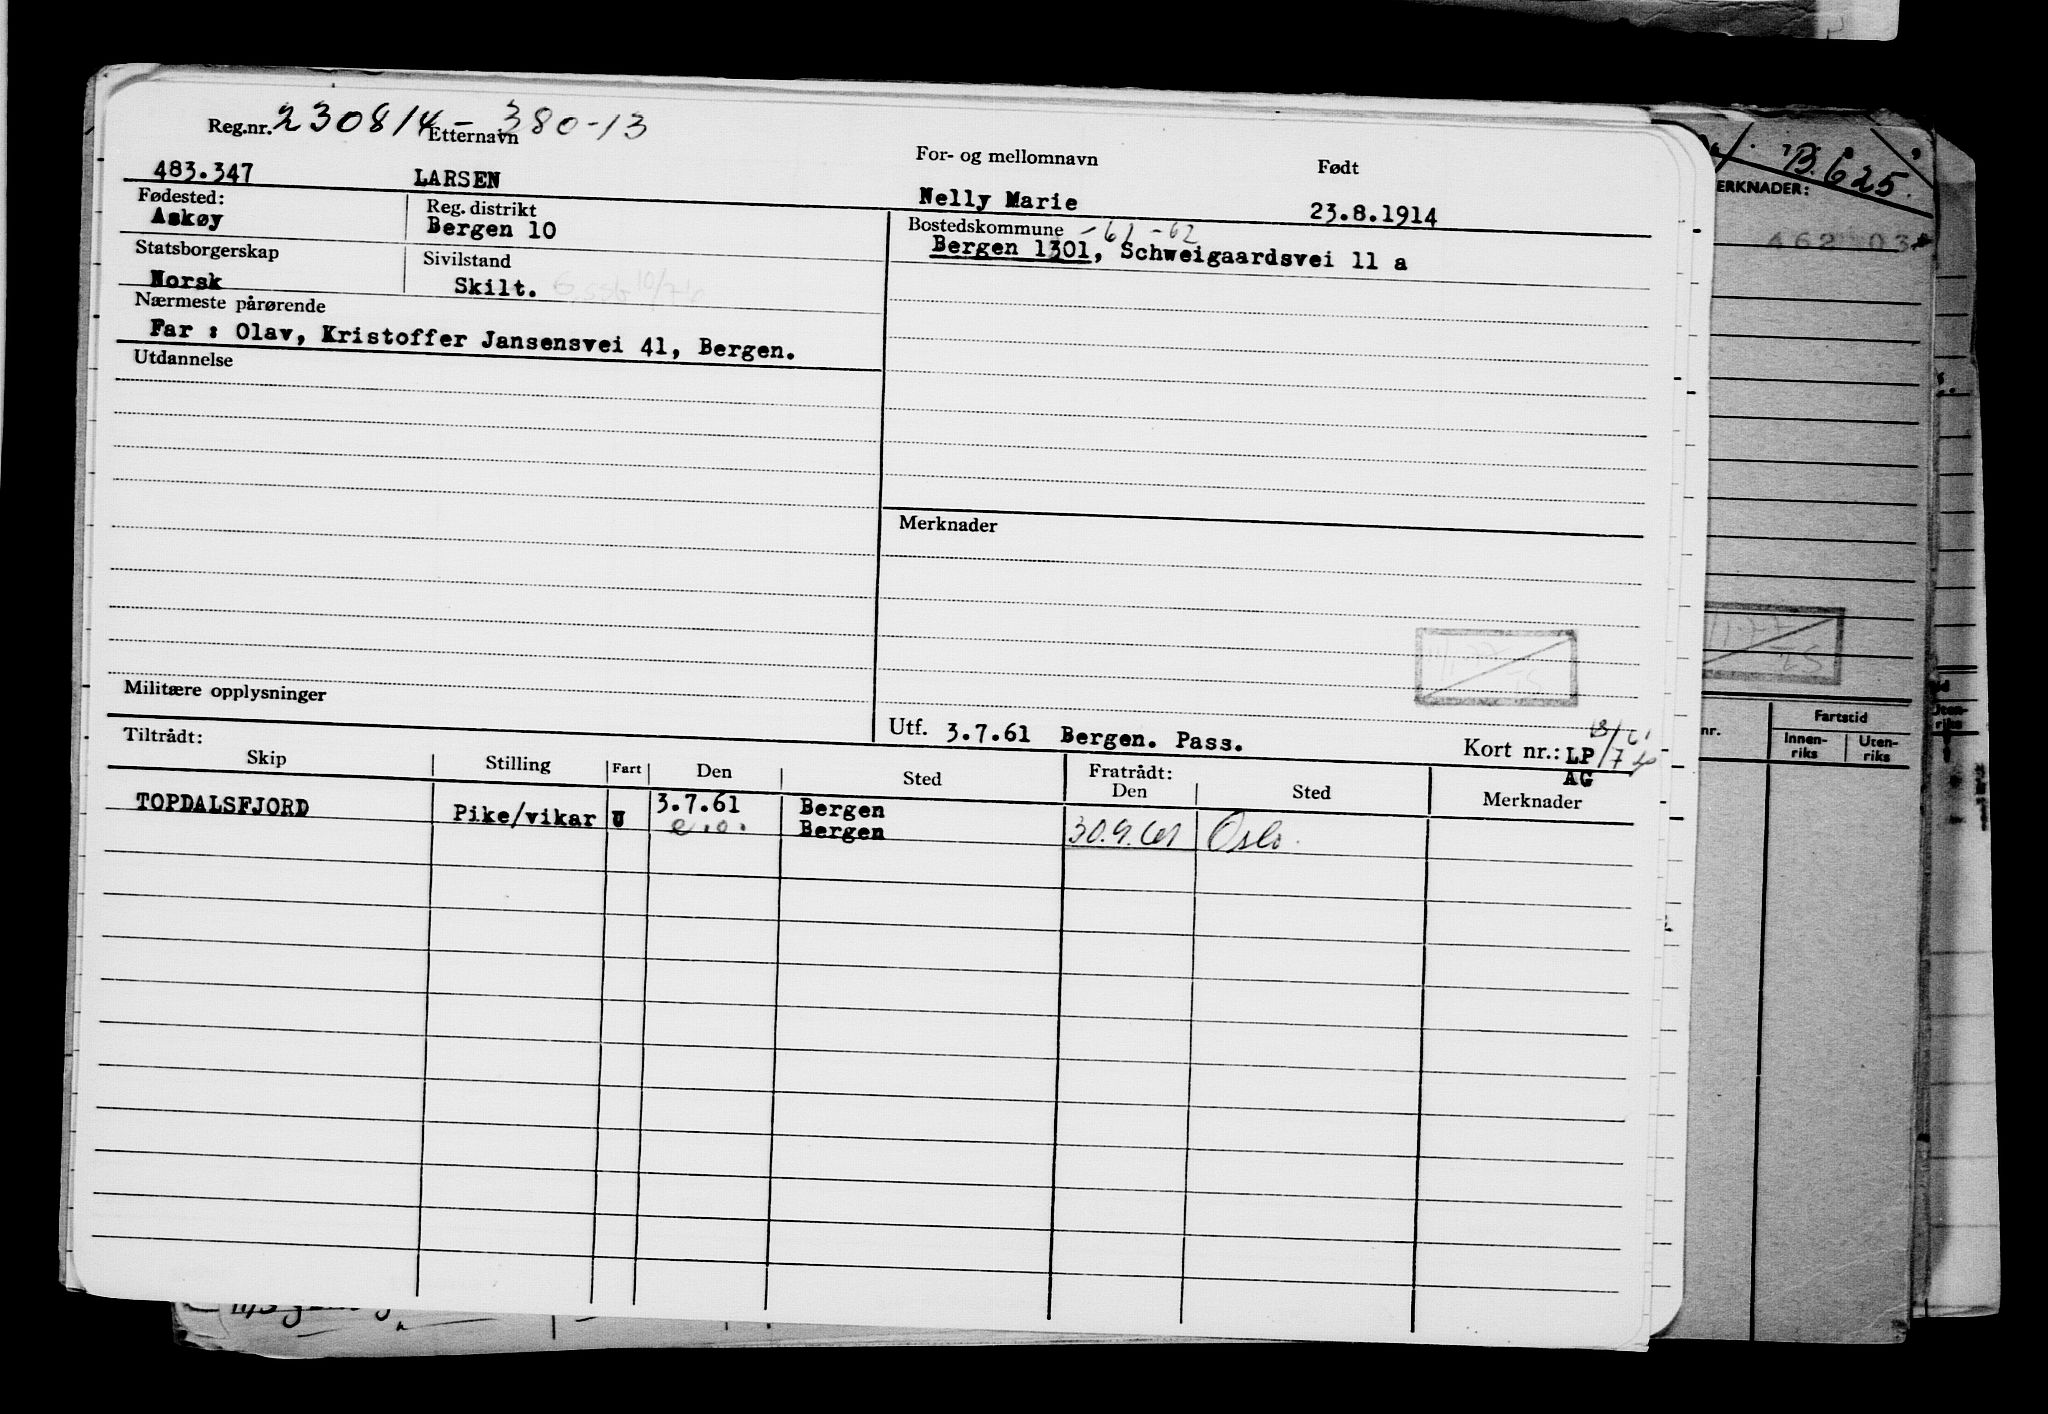 Reg.nr. 230814-380-13
Etternavn For- og mellomnavn Født
483.347 LARSEN Nelly Marie 23.8.1914
Fødested: Reg. distrikt Bostedskommune -61-62
Askøy Bergen 10 Bergen 1301, Schweigaardsvei 11 a
Statsborgerskap Sivilstand
Norsk Skilt.
Nærmeste pårørende
Far : Olav, Kristoffer Jansensvei 41, Bergen.
Utdannelse
Merknader
Militære opplysninger
Utf. 3.7.61 Bergen. Pass. Kort nr.: LP
AG
Tiltrådt: Fratrådt:
Skip Stilling Fart Den Sted Den Sted Merknader
TOPDALSFJORD Pike/vikar U 3.7.61 Bergen
e.o. Bergen 30.9.61 Oslo.
B.625.
ERKNADER:
462 03
nr. Fartstid
Innen-
riks
Uten-
riks